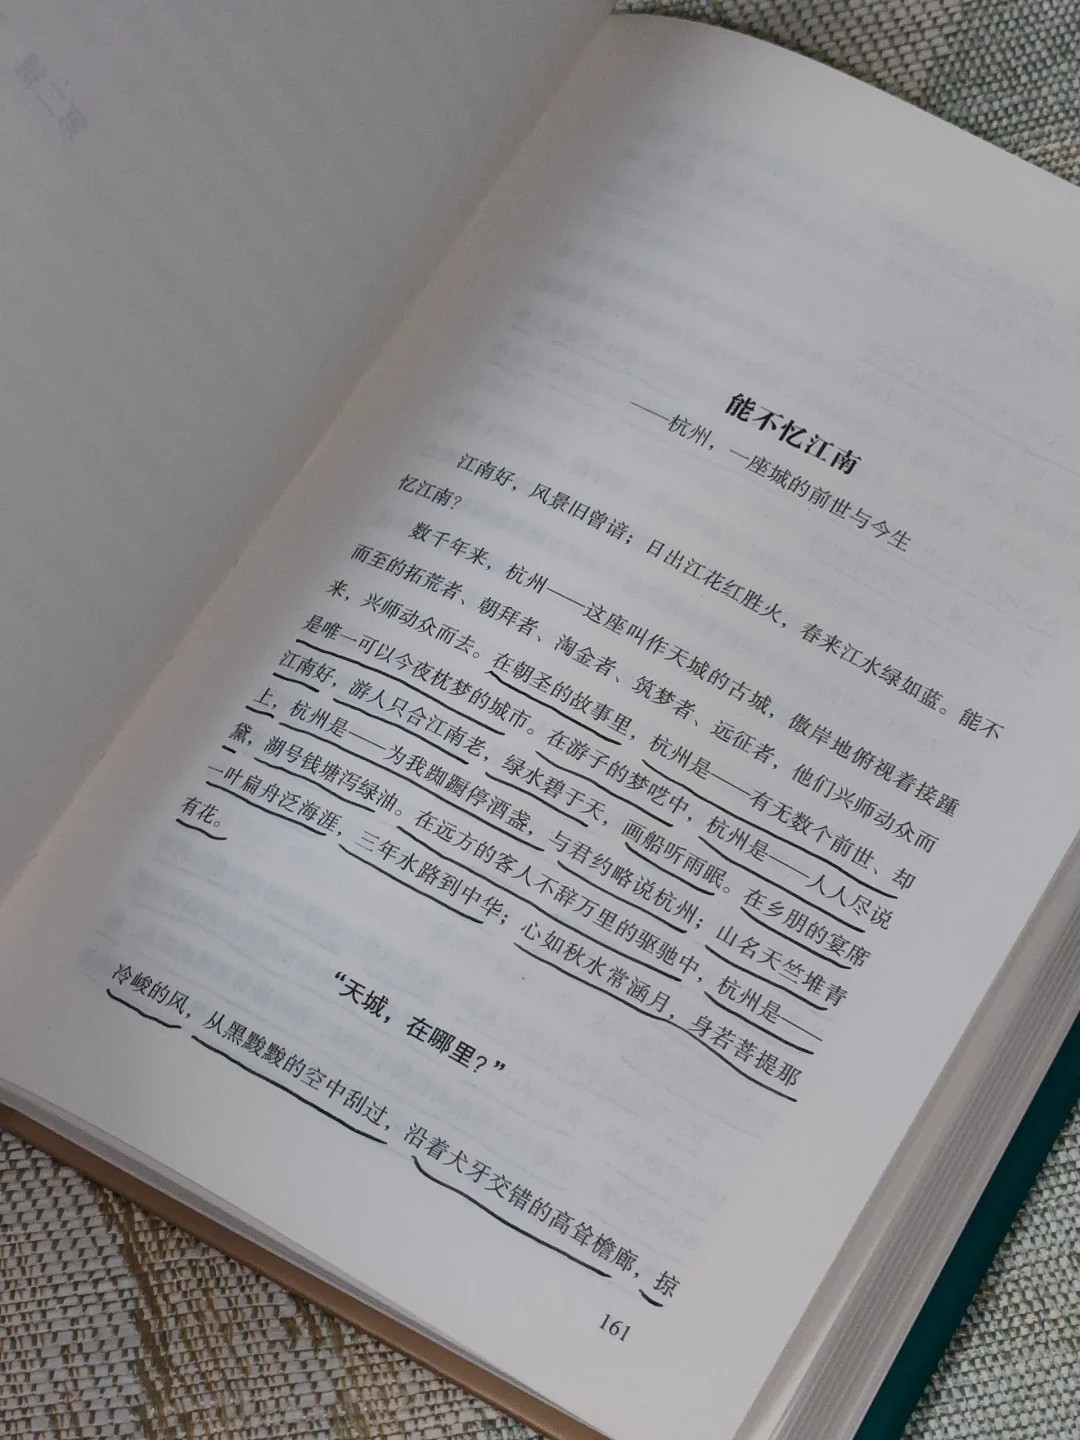 能不忆江南
——杭州，一座城的前世与今生
江南好，风景旧曾谙；日出江花红胜火，春来江水绿如蓝。能不
忆江南？
数千年来，杭州——这座叫作天城的古城，傲岸地俯视着接踵
而至的拓荒者、朝拜者、淘金者、筑梦者、远征者，他们兴师动众而
来，兴师动众而去。在朝圣的故事里，杭州是——有无数个前世、却
是唯一可以今夜枕梦的城市。在游子的梦呓中，杭州是——人人尽说
江南好，游人只合江南老，绿水碧于天，画船听雨眠。在乡朋的宴席
上，杭州是——为我踟蹰停酒盏，与君约略说杭州；山名天竺堆青
黛，湖号钱塘泻绿油。在远方的客人不辞万里的驱驰中，杭州是——
一叶扁舟泛海涯，三年水路到中华；心如秋水常涵月，身若菩提那
有花。
“天城，在哪里？”
冷峻的风，从黑黢黢的空中刮过，沿着犬牙交错的高耸檐廊，掠
161